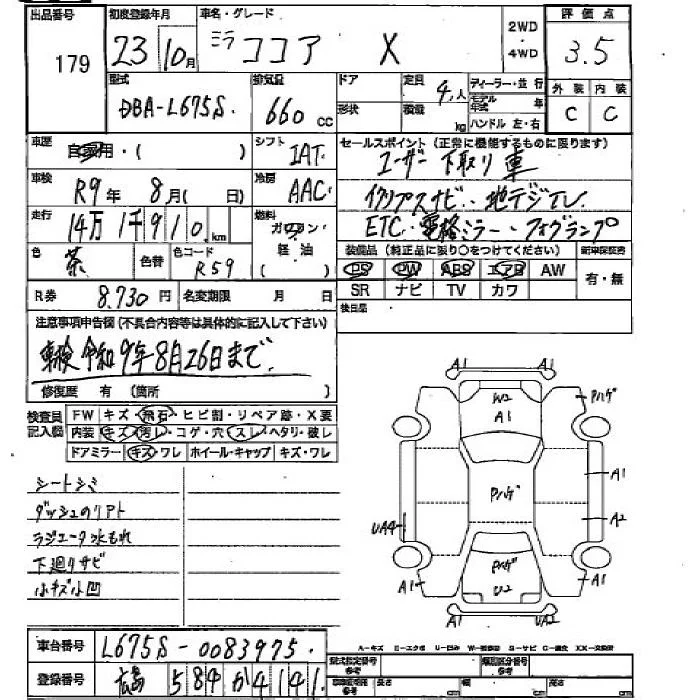 出品番号 初度登録年月 車名・グレード 2WD・4WD 評価点
179 23年10月 ミラ ココア X 3.5
型式 排気量 ドア 定員 ディーラー・並行 外装 内装
DBA-L675S. 660 cc 形状 積載 4人 kg モデル年式 年 ハンドル 左・右 C C
車歴 自家用・( ) シフト IAT. セールスポイント(正常に機能するものに限ります)
ユーザー下取り車
車検 R9年 8月( 日) 冷房 AAC イクリプスナビ・地デジTV
走行 14万1千910km 燃料 ガソリン・軽油 ( ) ETC・電格ミラー・フォグランプ
色 茶 色替 色コード R59 装備品(純正品に限り○をつけてください) 新車保証書
PS PW ABS エアB AW 有・無
R券 8,730円 名変期限 月 日 SR ナビ TV カワ
注意事項申告欄(不具合内容等は具体的に記入して下さい) 後日品
車検 令和9年8月26日まで.
修復歴 有 (箇所 )
検査員記入欄 FW キズ・飛石・ヒビ割・リペア跡・X要
内装 キズ・汚レ・コゲ・穴・スレ・ヘタリ・破レ
ドアミラー キズ・ワレ ホイール・キャップ キズ・ワレ
シートシミ
ダッシュのリアト
ラジエータ水もれ
下廻りサビ
小キズ小凹
A1 A1
W2 Pハゲ
A1
A1
Pハゲ
UA4 A2
Pハゲ
A1 U2 A1
A1 UA2
車台番号 L675S-0083975.
A-キズ E-エクボ U-凹み W-補修跡 S-サビ C-腐食 XX-交換済
型式指定番号 参考 類別区分番号 参考
登録番号 広島 584 か 4141.
長さ cm 幅 cm 高さ cm